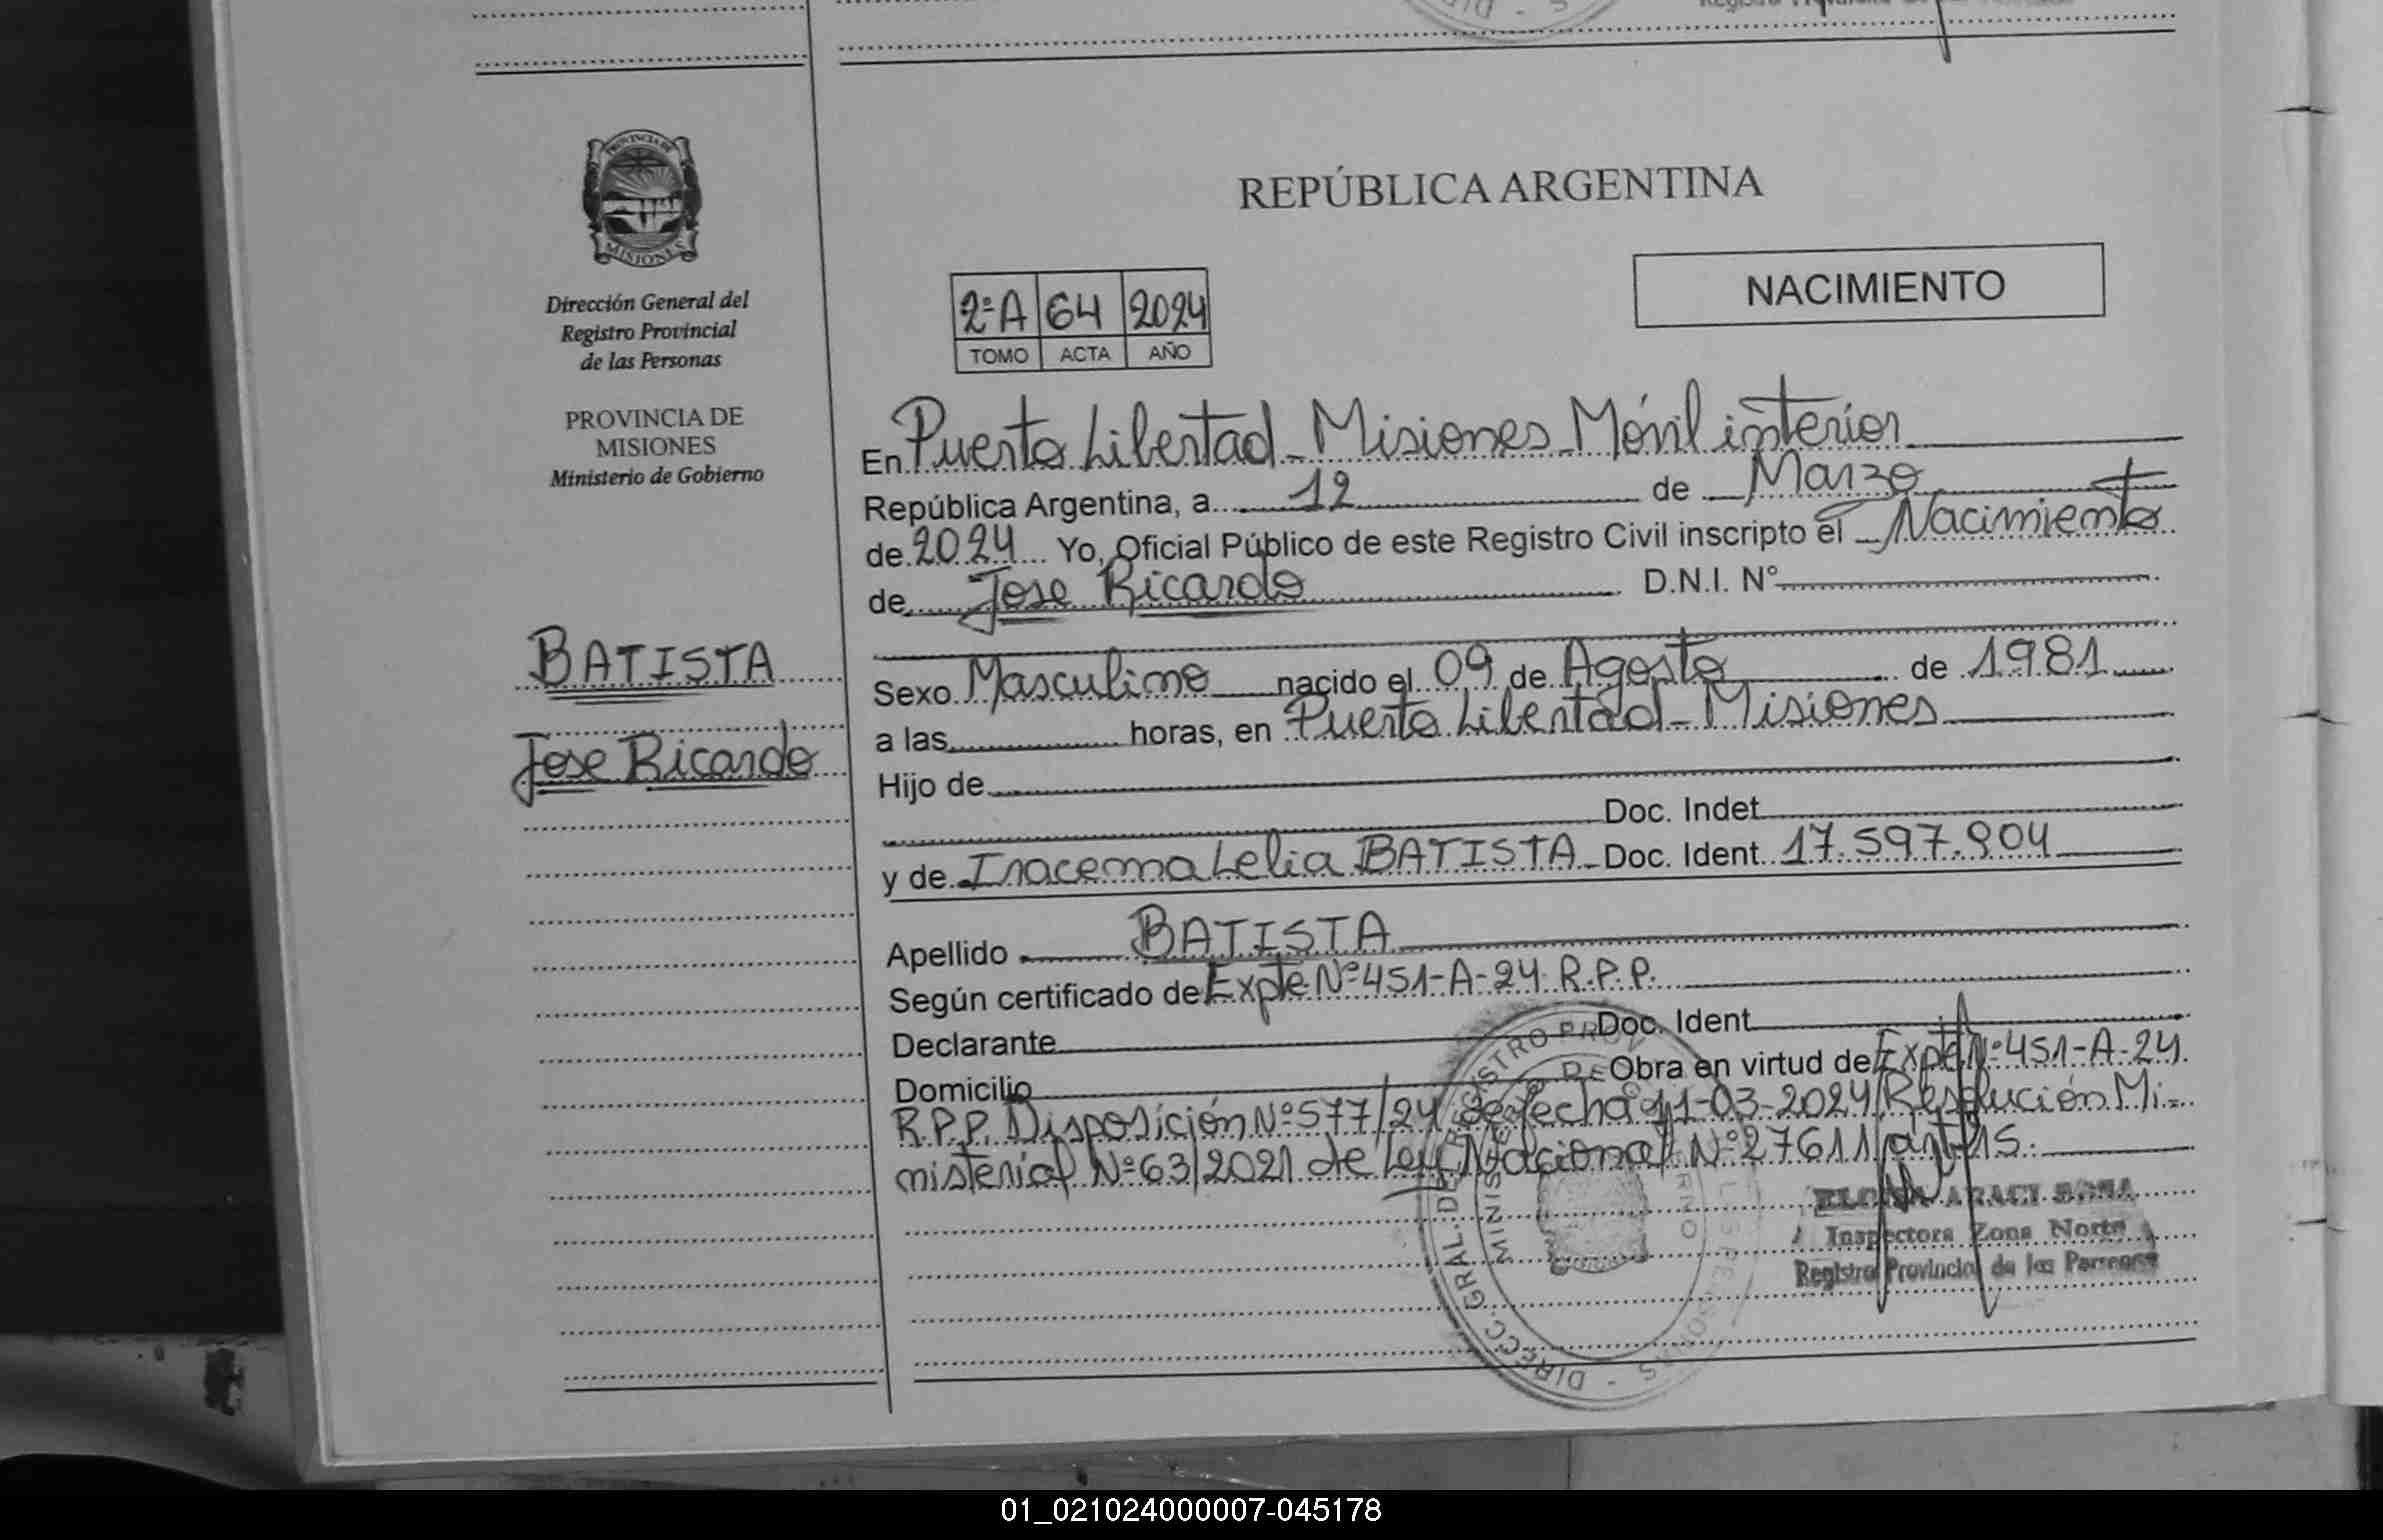 PROVINCIA DE
MISIONES
Dirección General del
Registro Provincial
de las Personas
PROVINCIA DE
MISIONES
Ministerio de Gobierno
BATISTA
Jose Ricardo
REPÚBLICA ARGENTINA
NACIMIENTO
2ºA 64 2024
TOMO ACTA AÑO
En Puerto Libertad - Misiones - Móvil interior
República Argentina, a 12 de Marzo
de 2024 Yo, Oficial Público de este Registro Civil inscripto el Nacimiento
de Jose Ricardo D.N.I. Nº
Sexo Masculino nacido el 09 de Agosto de 1981
a las horas, en Puerto Libertad - Misiones
Hijo de
Doc. Indet
y de Iracema Lelia BATISTA - Doc. Ident. 17.597.904
Apellido BATISTA
Según certificado de Expte Nº 451-A-24 R.P.P.
Declarante Doc. Ident
Domicilio Obra en virtud de Expte Nº 451-A-24
R.P.P. Disposición Nº 577/24 de fecha 11-03-2024/Resolución Mi-
nisterial Nº 63/2021 de Ley Nacional Nº 27611/art 15.
ARACI
Inspectora Zona Norte
Registro Provincial de las Personas
01_021024000007-045178